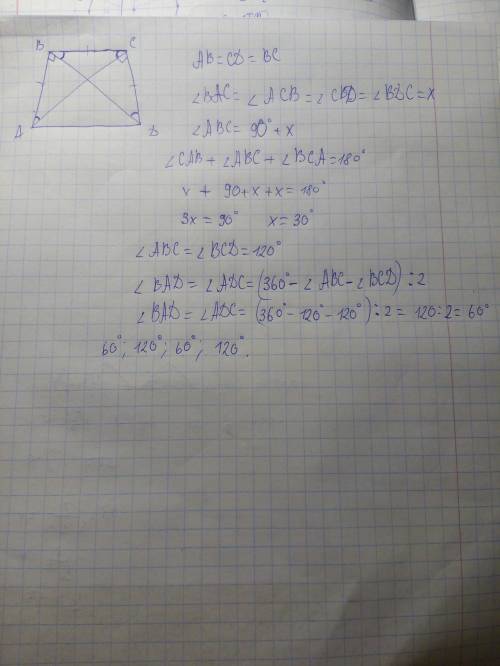 B C
A D
AB = CD = BC
∠BAC = ∠ACB = ∠CBD = ∠BDC = x
∠ABC = 90° + x
∠CAB + ∠ABC + ∠BCA = 180°
x + 90 + x + x = 180°
3x = 90° x = 30°
∠ABC = ∠BCD = 120°
∠BAD = ∠ADC = (360° - ∠ABC - ∠BCD) : 2
∠BAD = ∠ADC = (360° - 120° - 120°) : 2 = 120 : 2 = 60°
60°; 120°; 60°; 120°.